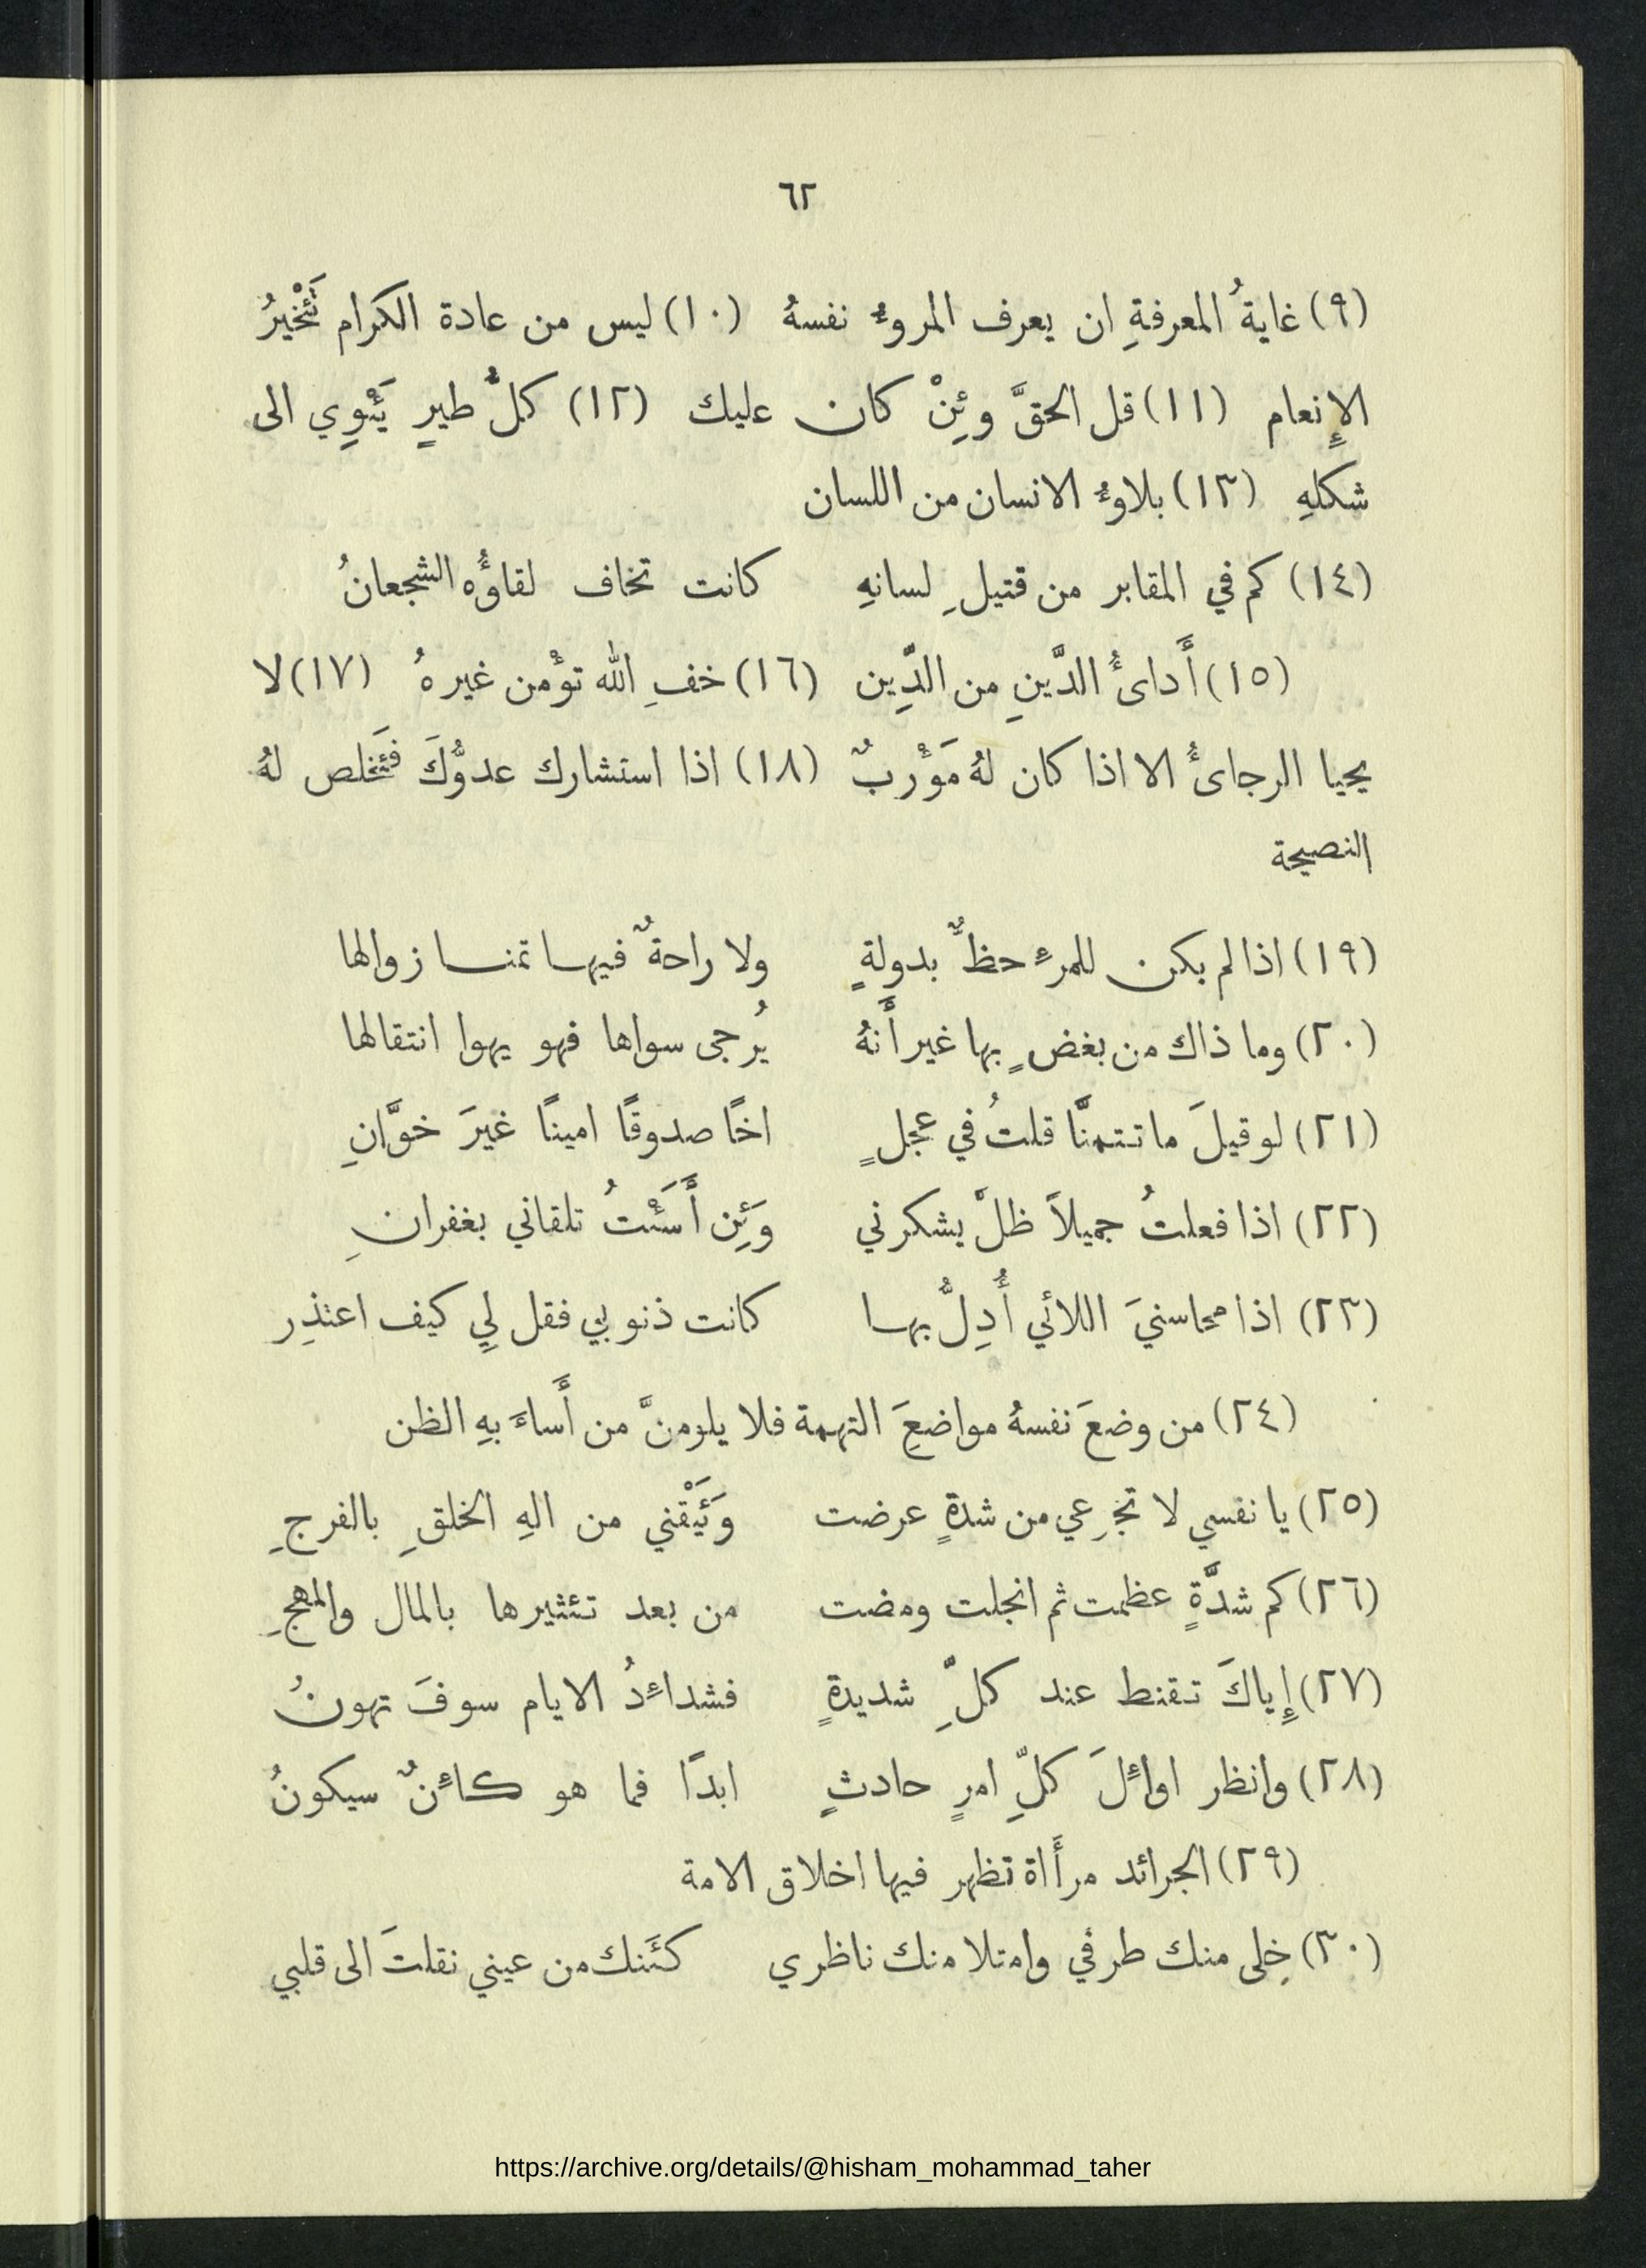 ٦٢
(٩) غايةُ المعرفةِ ان يعرف المروءُ نفسهُ (١٠) ليس من عادة الكرام تَئْخيرُ
الإِنعام (١١) قل الحقَّ وئِنْ كان عليك (١٢) كلُّ طيرٍ يَئْوِي الى
شكلهِ (١٣) بلاوءُ الانسان من اللسان
(١٤) كم في المقابر من قتيلِ لسانهِ كانت تخاف لقاؤُه الشجعانُ
(١٥) أَدائُ الدَّينِ من الدِّين (١٦) خفِ الله تؤْمن غيرهُ (١٧) لا
يحيا الرجائُ الا اذا كان لهُ مَؤْربٌ (١٨) اذا استشارك عدوُّكَ فَئَخلص لهُ
النصيحة
(١٩) اذا لم يكن للمرءِ حظٌّ بدولةٍ ولا راحةٌ فيها تمنا زوالها
(٢٠) وما ذاك من بغضٍ بها غير أَنهُ يُرجى سواها فهو يهوا انتقالها
(٢١) لو قيلَ ما تتمنَّا قلتُ في عجلٍ اخًا صدوقًا امينًا غيرَ خوَّانِ
(٢٢) اذا فعلتُ جميلاً ظلَّ يشكرني وَئِن أَسَئْتُ تلقاني بغفرانِ
(٢٣) اذا محاسنيَ اللائي أُدِلُّ بها كانت ذنوبي فقل لِي كيف اعتذِر
(٢٤) من وضعَ نفسهُ مواضعَِ التهمة فلا يلومنَّ من أَساءَ بهِ الظن
(٢٥) يا نفسي لا تجزِعي من شدةٍ عرضت وَئَيْقني من الهِ الخلقِ بالفرجِ
(٢٦) كم شدَّةٍ عظمت ثم انجلت ومضت من بعد تئثيرها بالمال والمهجِ
(٢٧) إِياكَ تقنط عند كلِّ شديدةٍ فشداءِدُ الايام سوفَ تهونُ
(٢٨) وانظر اواءِلَ كلِّ امرٍ حادثٍ ابدًا فما هو كاءِنٌ سيكونُ
(٢٩) الجرائد مرأَاة تظهر فيها اخلاق الامة
(٣٠) خِلى منك طرفي وامتلا منك ناظري كئَنك من عيني نقلتَ الى قلبي
https://archive.org/details/@hisham_mohammad_taher